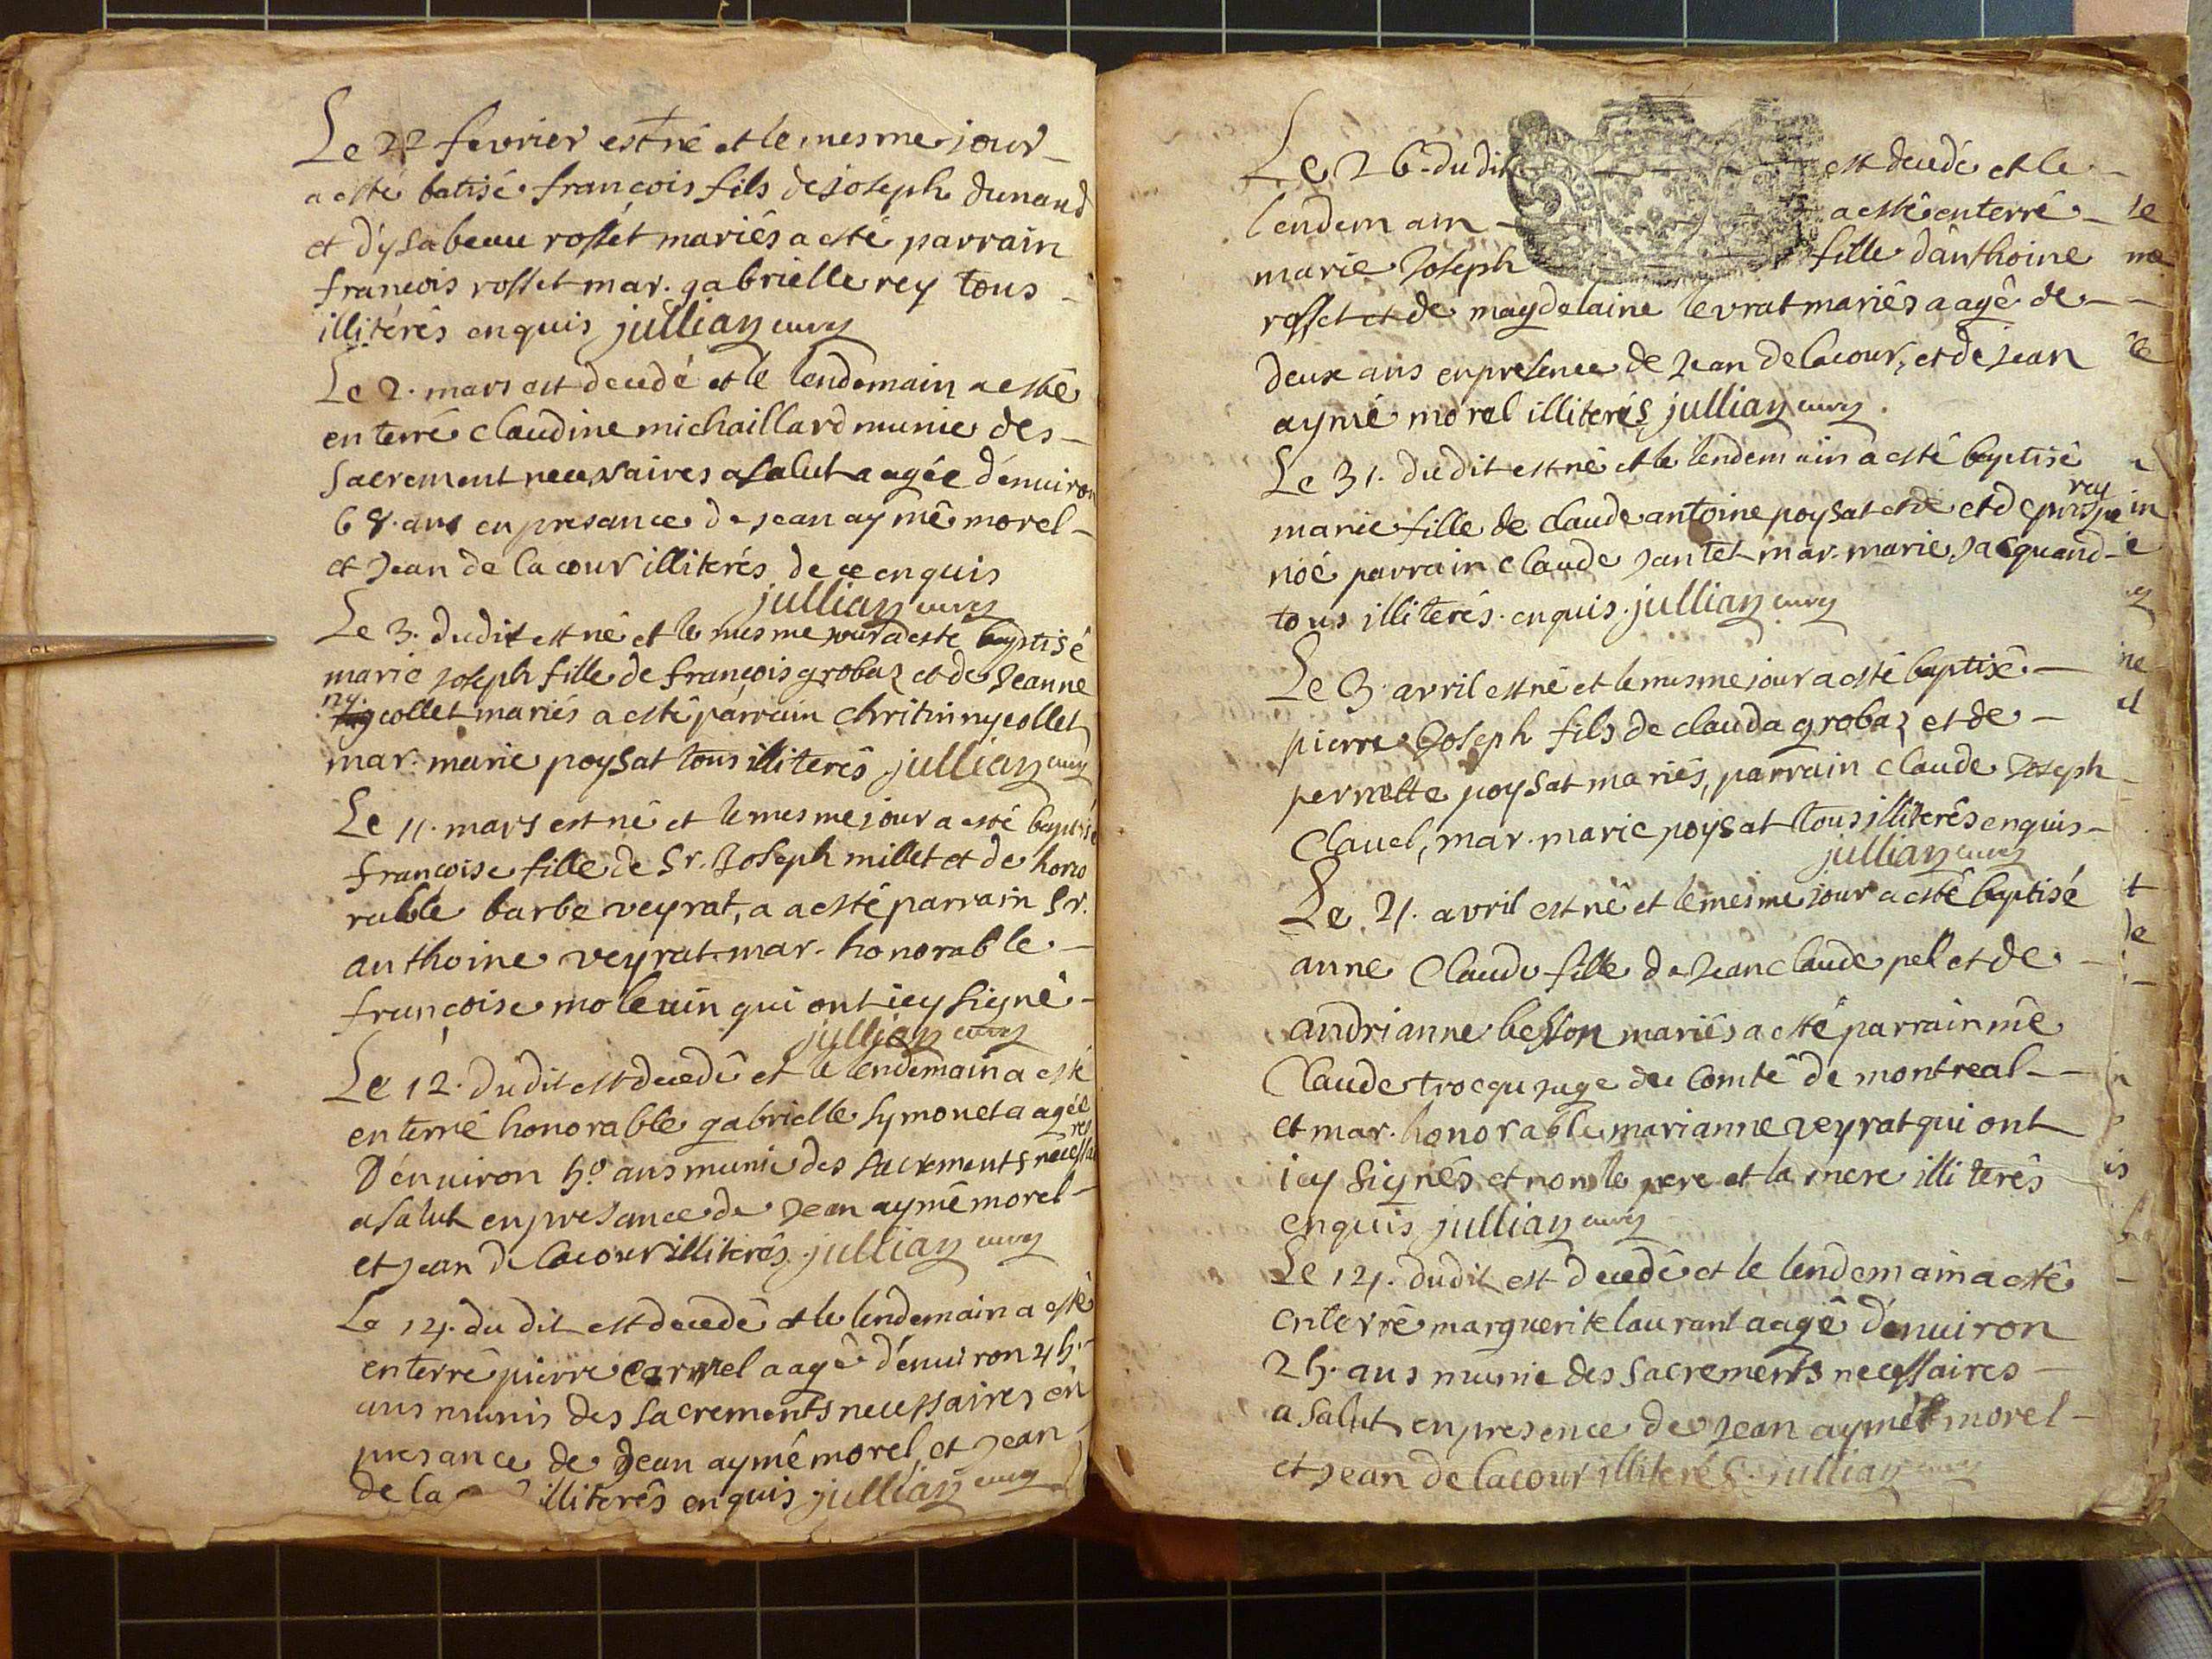 Le 22 fevrier est né et le mesme jour
a esté batisé françois fils de joseph dunand
et d'ysabeau rosset mariés a esté parrain
francois rosset mar. gabrielle rey tous
illitérés enquis jullian curé
Le 2. mars est decedé et le lendemain a esté
enterré claudine michaillard munie des
sacrement necessaires a salut aagée d'enuiron
68. ans en presance de jean aymé morel
et Jean de lacour illiterés de ce enquis
jullian curé
Le 3. dudit est né et le mesme jour a esté baptisé
marie Joseph fille de françois grobaz et de Jeanne
ny
collet mariés a esté parrain chritin nycollet
mar. marie poysat tous illiterés jullian curé
Le 11. mars est né et le mesme jour a esté baptisé
françoise fille de Sr. Joseph millet et de hono
rable barbe veyrat, a a esté parrain Sr.
anthoine veyrat mar. honorable
françoise moleuin qui ont icy signé
jullian curé
Le 12. dudit est decedé et le lendemain a esté
enterré honorable gabrielle symonet aagée
D'enuiron 50 ans munie des sacrements necessa
res
a salut en presance de Jean aymé morel
et Jean de lacour illiterés. jullian curé
Le 14. du dit est decedé et le lendemain a esté
enterré pierre aagé d'enuiron 45.
ans munis des sacrements necessaires en
presance de Jean aymé morel, et Jean
de la illiterés enquis jullian curé
Le 26. du dit est decedé et le
lendemain a esté enterré
marie Joseph fille d'anthoine
rosset et de magdelaine levrat mariés aagé de
deux ans en presence de Jean de lacour, et de Jean
aymé morel illiterés jullian curé.
Le 31. dudit est né et le lendemain a esté baptisé
marie fille de claude antoine poysat et de et de
rey
noé parrain claude Jantet mar. marie Jacquand
tous illiterés. enquis. jullian curé
Le 3. avril est né et le mesme jour a esté baptisé
pierre Joseph fils de clauda grobaz et de
pernette poysat mariés, parrain claude Joseph
Clauel, mar. marie poysat tous illiterés enquis
jullian curé
Le 4. avril est né et le mesme jour a esté baptisé
anne Claude fille de Jean claude pel et de
andrianne besson mariés a esté parrain me
Claude trocqu juge du Comté de montreal
et mar. honorable marianne veyrat qui ont
icy signés et non le pere et la mere illiterés
enquis jullian curé
Le 14. dudit est decedé et le lendemain a esté
enterré marguerite laurant aagé d'enuiron
25. ans munie des sacrements necessaires
a salut en presence de Jean aymé morel
et Jean de lacour illiterés. jullian curé